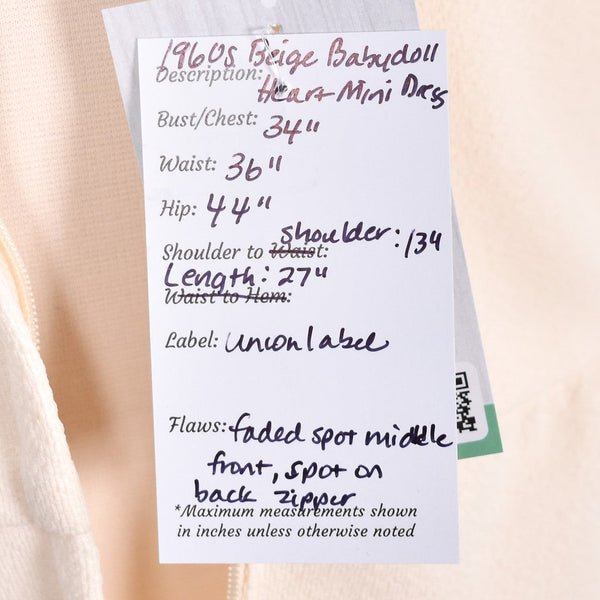 1960s Beige Babydoll
Description:
Heart Mini Dress
Bust/Chest: 34"
Waist: 36"
Hip: 44"
shoulder:
Shoulder to Waist:
Length: 27"
Waist to Hem:
Label: Union label
Flaws: faded spot middle
front, spot on
back zipper
*Maximum measurements shown
in inches unless otherwise noted